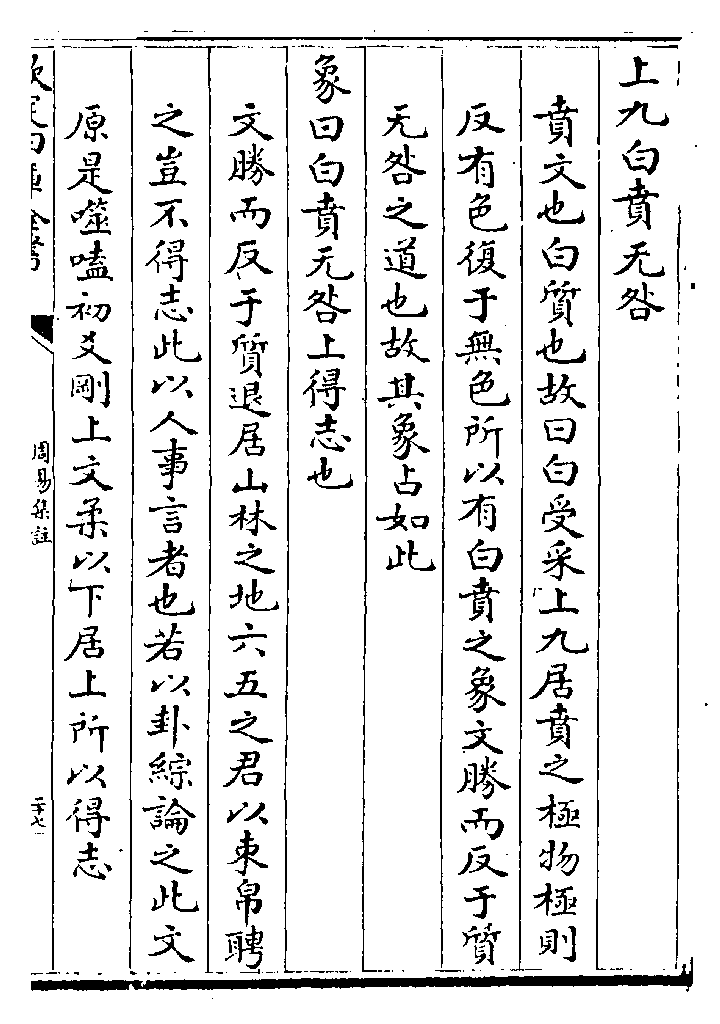 上九白賁无咎
賁文也白質也故曰白受采上九居賁之極物極則
反有色復于無色所以有白賁之象文勝而反于質
无咎之道也故其象占如此
象曰白賁无咎上得志也
文勝而反于質退居山林之地六五之君以束帛聘
之豈不得志此以人事言者也若以卦綜論之此文
原是噬嗑初爻剛上文柔以下居上所以得志
欽定四庫全書
周易集註
二十七